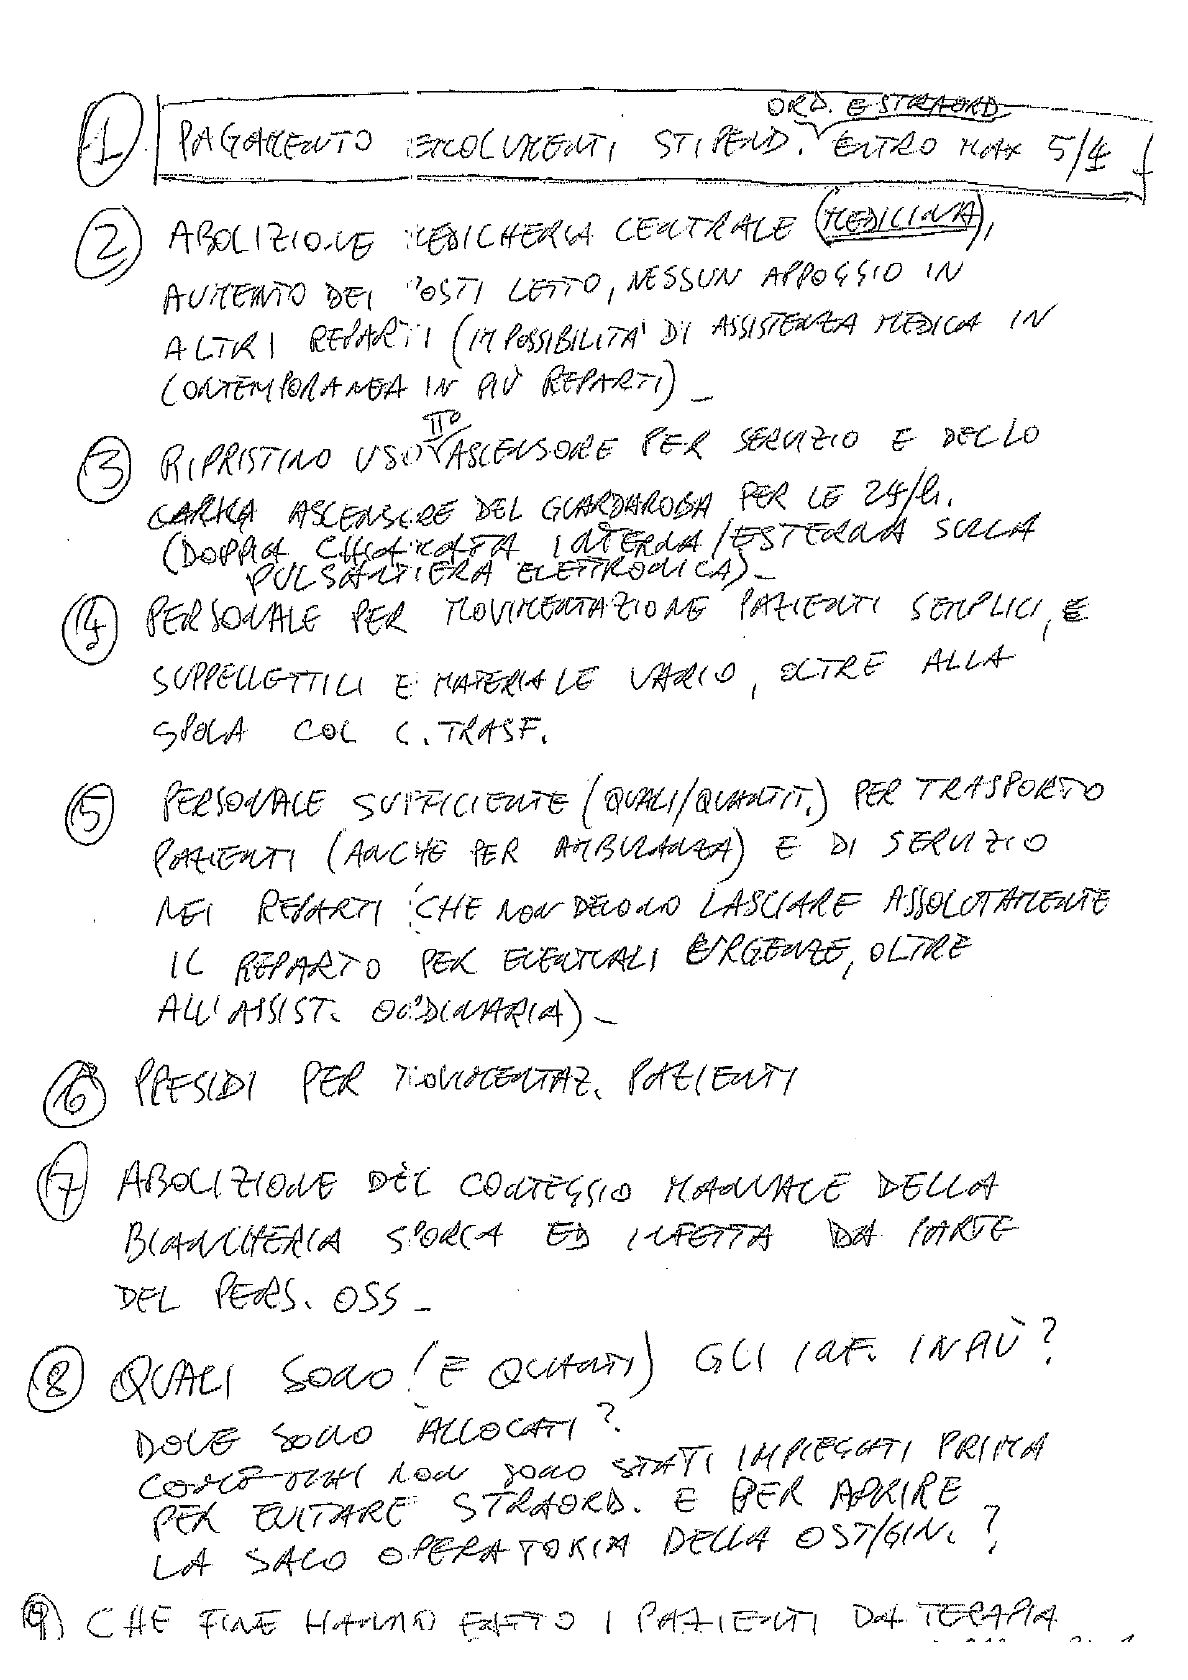 ORD. E STRAORD
1 PAGAMENTO EMOLUMENTI STIPEND. ENTRO MAX 5/4
2 ABOLIZIONE MEDICHERIA CENTRALE (MEDICINA),
AUMENTO DEI POSTI LETTO, NESSUN APPOGGIO IN
ALTRI REPARTI (IMPOSSIBILITA' DI ASSISTENZA MEDICA IN
CONTEMPORANEA IN PIÙ REPARTI) -
IIº
3 RIPRISTINO USO ASCENSORE PER SERVIZIO E DELLO
ASCENSORE DEL GUARDAROBA PER LE 24/h.
(DOPPIA CHIAMATA INTERNA/ESTERNA SULLA
PULSANTIERA ELETTRONICA) -
4 PERSONALE PER MOVIMENTAZIONE PAZIENTI SEMPLICI, E
SUPPELLETTILI E MATERIALE VARIO, OLTRE ALLA
SPOLA COL C. TRASF.
5 PERSONALE SUFFICIENTE (QUALI/QUANTIT.) PER TRASPORTO
PAZIENTI (ANCHE PER AMBULANZA) E DI SERVIZIO
NEI REPARTI (CHE NON DEVONO LASCIARE ASSOLUTAMENTE
IL REPARTO PER EVENTUALI URGENZE, OLTRE
ALL'ASSIST. ORDINARIA) -
6 PRESIDI PER MOVIMENTAZ. PAZIENTI
7 ABOLIZIONE DEL CONTEGGIO MANUALE DELLA
BIANCHERIA SPORCA ED INFETTA DA PARTE
DEL PERS. OSS -
8 QUALI SONO (E QUANTI) GLI INF. IN PIÙ?
DOVE SONO ALLOCATI?
COME MAI NON SONO STATI IMPIEGATI PRIMA
PER EVITARE STRAORD. E PER APRIRE
LA SALO OPERATORIA DELLA OST/GIN.?
9) CHE FINE HANNO FATTO I PAZIENTI DA TERAPIA